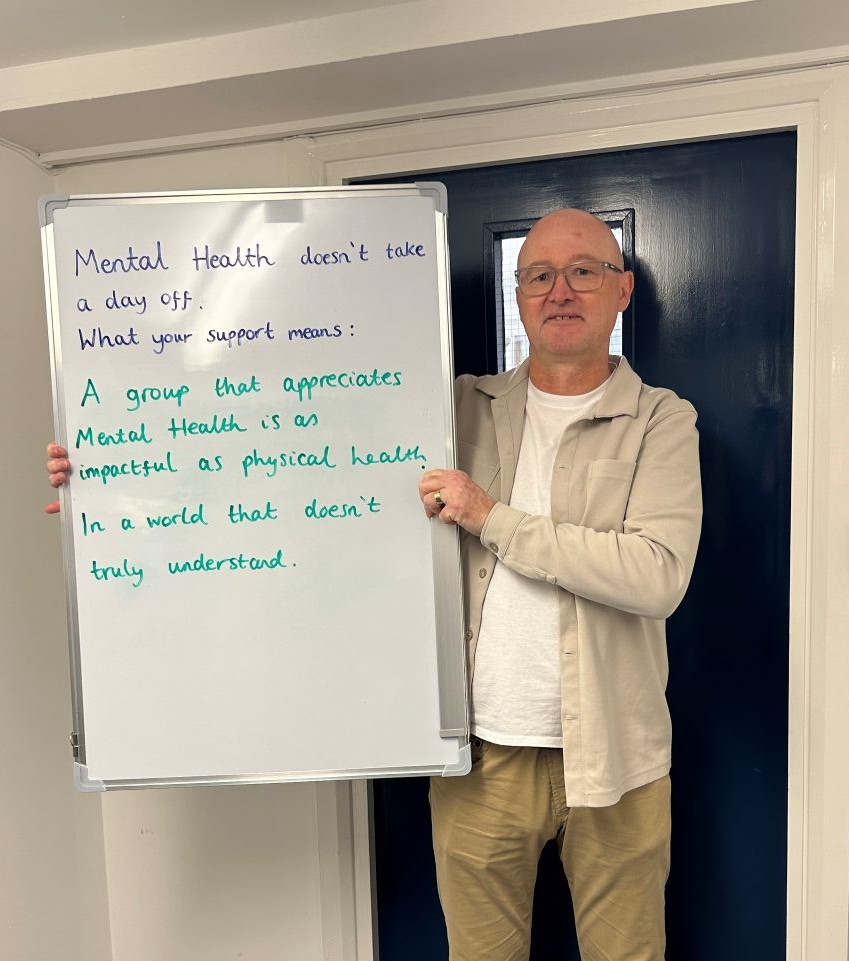 Mental Health doesn't take
a day off.
What your support means:
A group that appreciates
Mental Health is as
impactful as physical health.
In a world that doesn't
truly understand.